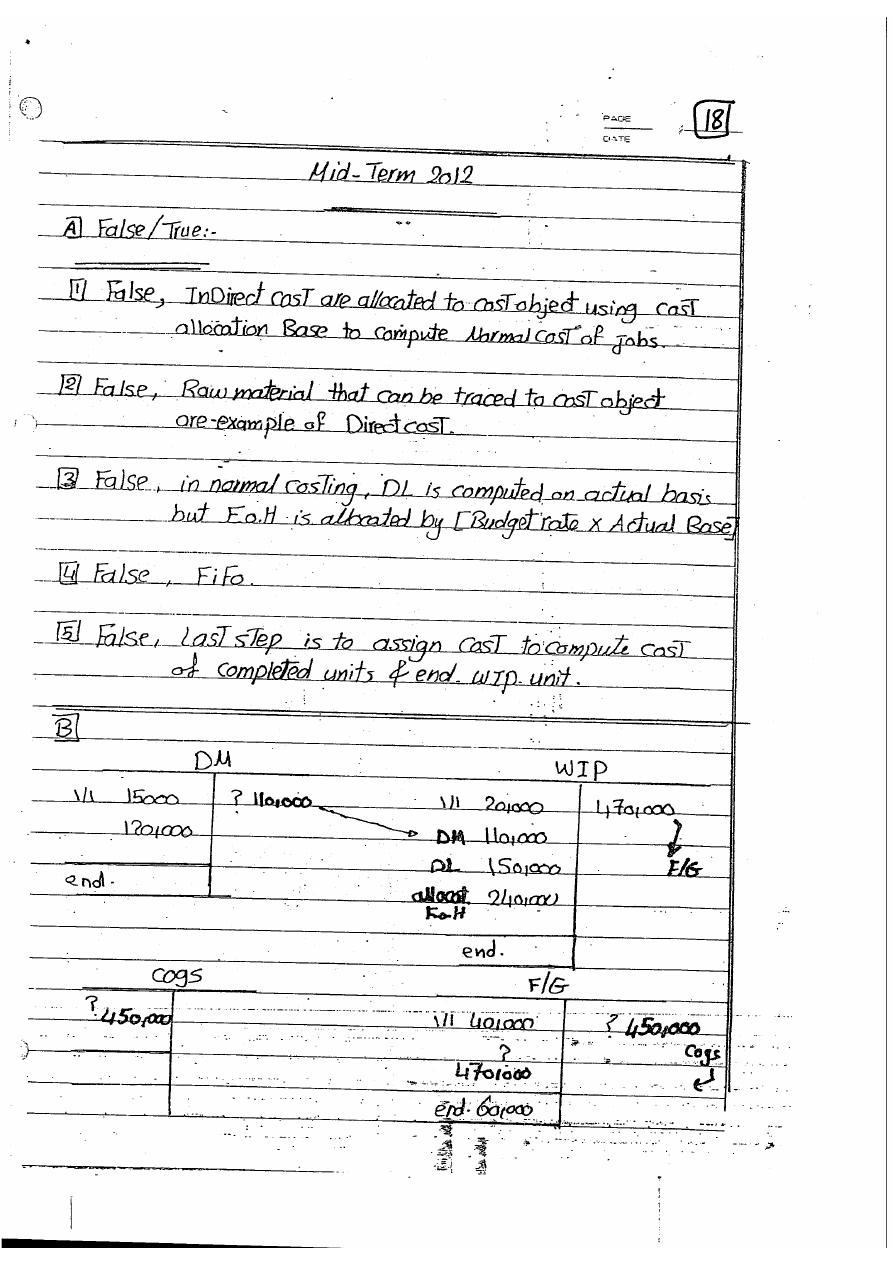 PAGE
18
DATE
Mid-Term 2012
A False/True:-
1 False, InDirect cost are allocated to cost object using cost
allocation Base to compute Normal cost of jobs.
2 False, Raw material that can be traced to cost object
are-example of Direct cost.
3 False, in normal costing, DL is computed on actual basis
but F.o.H is allocated by [Budget rate x Actual Base]
4 False, FiFo.
5 False, Last step is to assign cost to compute cost
of completed units & end. WIP. unit.
B
DM
WIP
1/1 15000
? 110,000
1/1 20,000
470,000
120,000
DM 110,000
DL 150,000
F/G
end.
allocat 240,000
F.o.H
end.
COGS
F/G
? 450,000
1/1 40,000
? 450,000
?
Cogs
470,000
end. 60,000